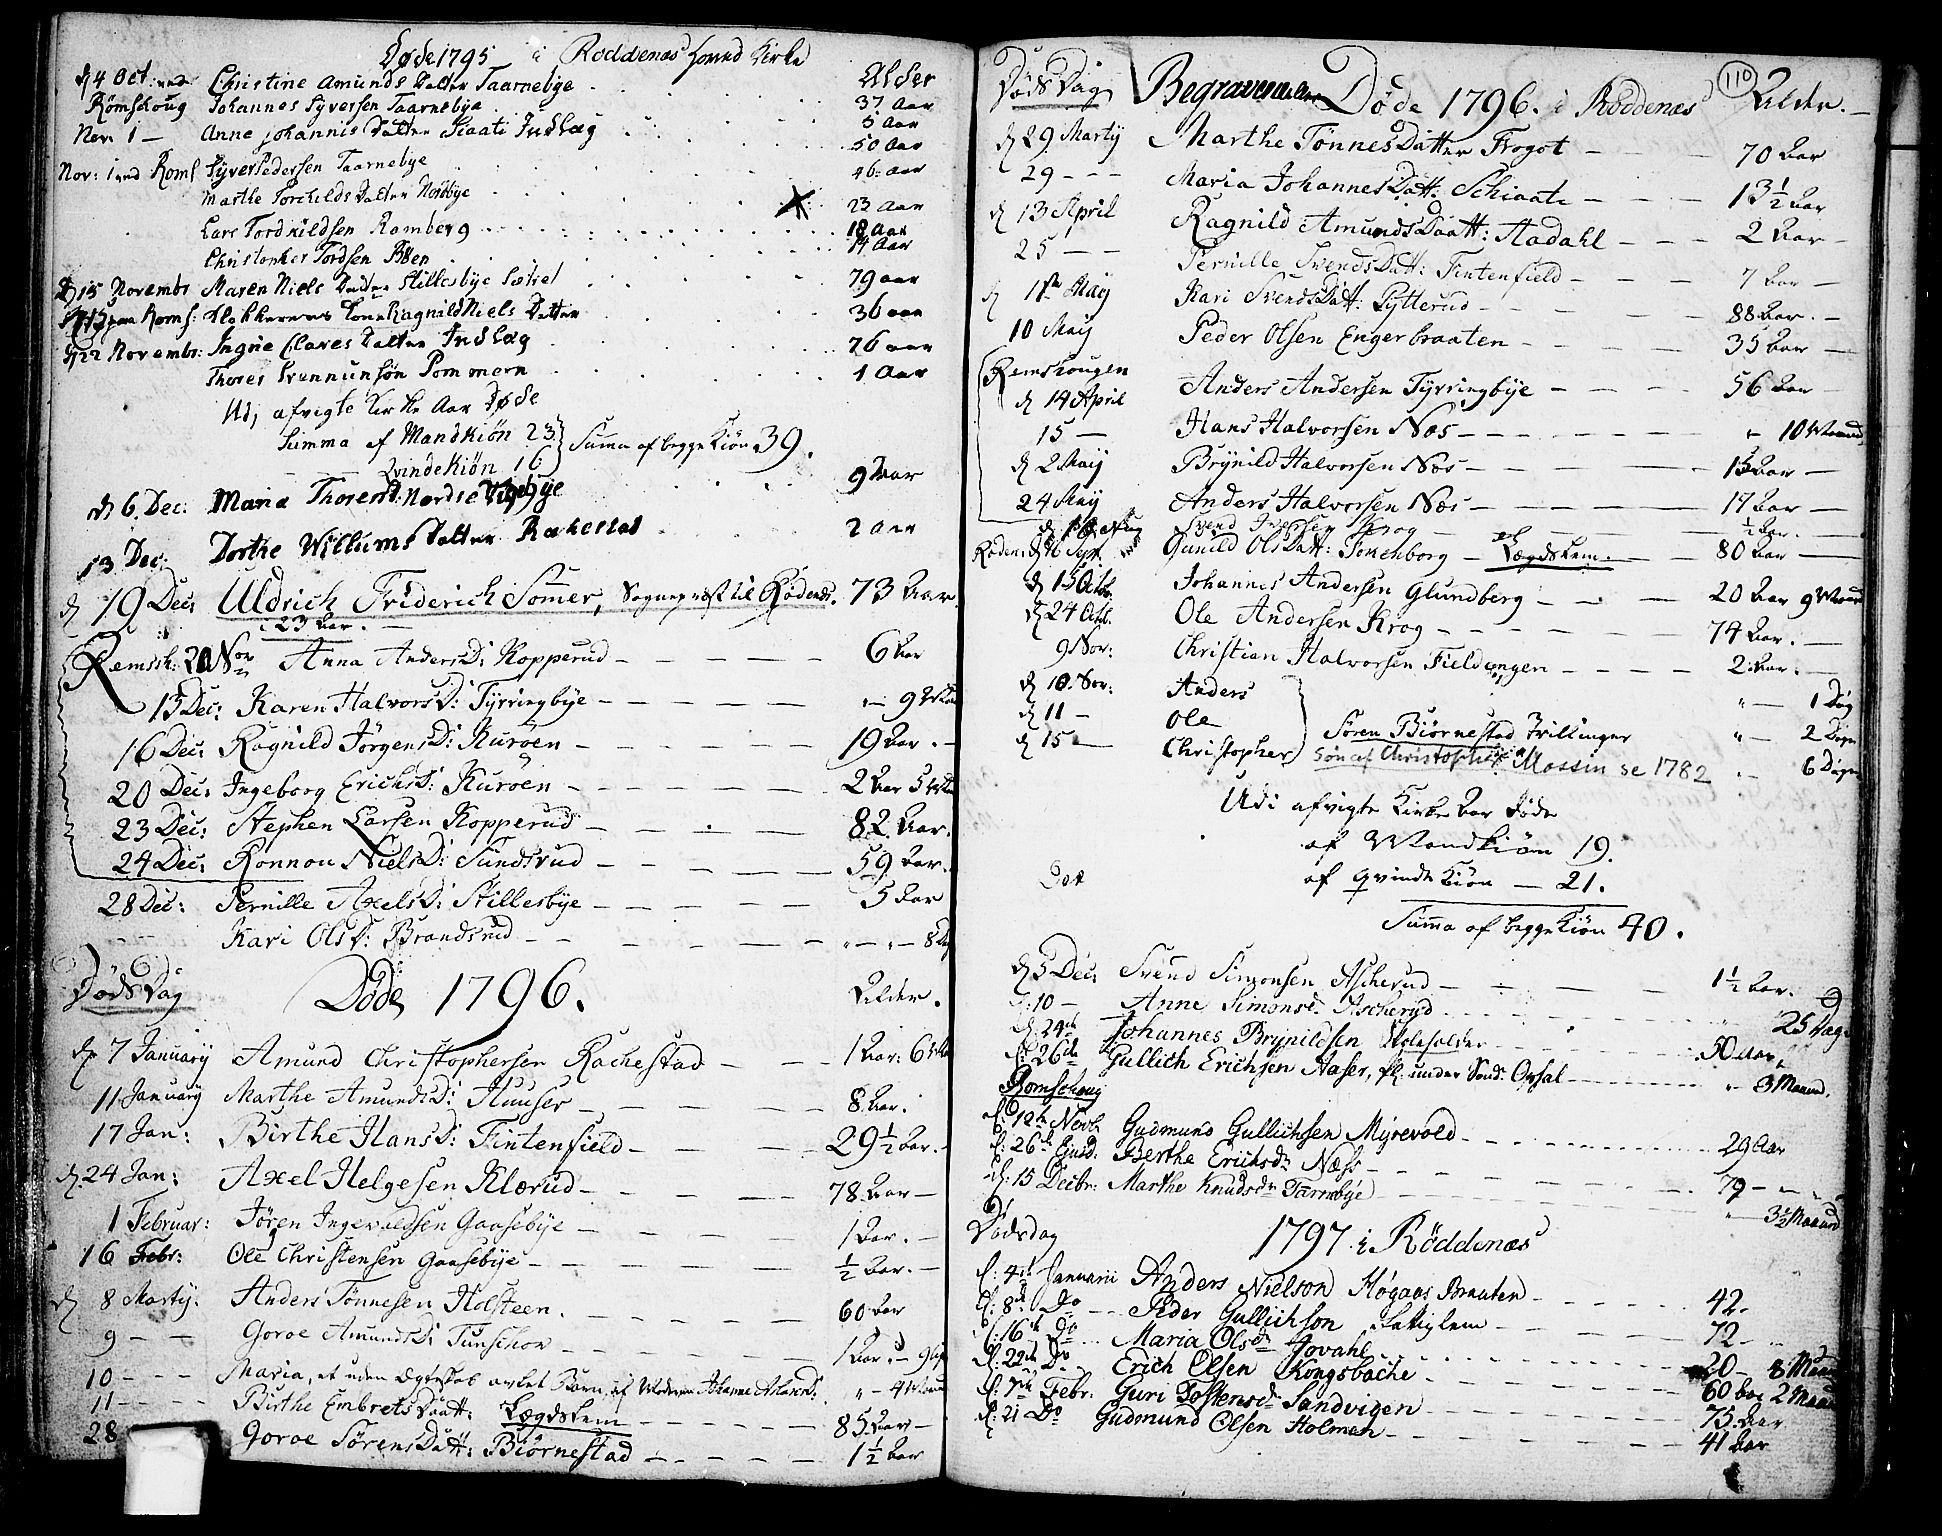 Døde 1795 i Røddenæs hoved Kirke
d 4 Oct ved Christine Amunds Datter Taarnebye Alder
Rømskoug Johannes Syversen Taarnebye 37 Aar
Nov: 1 — Anne Johannis Datter Skaati Indlæg 5 Aar
50 Aar
Nov: 1 ved Roms Syver Pedersen Taarnebye 46 aar
Marthe Torchilds Datter Nordbye 23 Aar
Lars Tordkildsen Romberg 18 Aar
Christopher Tordsen Bøen 14 Aar
d 15 Novembr Maren Niels Datter Stillesbye Sætret 79 aar
Roms: Klokkerens Kone Ragnild Niels Datter 36 aar
d 22 Novembr: Ingrie Clares Datter Indlæg 76 aar
Thores Svennunsøn Pommern 1 Aar
Udj afvigte Kirke Aar Døde
Summa af Mandkiøn 23
Qvindekiøn 16 } Suma af begge Kiøn 39.
d 6. Dec: Maria Thoresd: Nordre 9 Aar
13 Dec: Dorthe Willums Datter Rakestad 2 Aar
d 19 Dec: Uldrich Friderich Somer, Sogneprest til Rødenes. 73 Aar.
i 23 Aar.
Remssk: 20 Nov Anna AndersD: Kopperud — 6 Aar
13 Dec: Karen HalvorsD: Tyrringbye — 9
16 Dec: Ragnild JørgensD: Kurøen — 19 Aar. —
20 Dec: Ingeborg ErichsD: Kurøen — 2 Aar 5
23 Dec: Stephen Larsen Kopperud — 82 Aar.
24 Dec: Ronnou NielsD: Sundsrud — 59 Aar.
28 Dec: Pernille AxelsD: Stillesbye — 5 Aar
Kari OlsD: Brandsrud — 8
DødsDag Døde 1796. Alder.
d 7 January Amund Christophersen Rachestad — 1 Aar: 6
11 January Marthe AmundsD: Huuser — 8 Aar.
17 Jan: Birthe HansD: Fintenfield — 29 1/2 Aar.
d. 24 Jan: Axel Helgesen Klærud — 78 Aar —
1 Februar: Jøren Ingevaldsen Gaasebye — 1 Aar. —
16 Febr: Ole Christensen Gaasebye — 1/2 Aar. —
d 8 Martij. Anders Tønnesen Holsteen. 60 Aar
9 — — Goroe AmundsD: Tunschov — 1 Aar. — 9
10 — — — Maria, et uden Ægteskab avlet Barn, af Moderen — 4
11 — — Birthe Embrets Datt: Lægdslem — 85 Aar —
28 Goroe Sørens Datt: Biørnestad — 1 1/2 Aar
DødsDag Begravne eller Døde 1796. i Røddenæs 110 Alder. —
d 29 Martij Marthe Tønnes Datter Frogot — 70 Aar
29 — — — Maria Johannes Datt: Schiaate — 13 1/2 Aar
d 13 April Ragnild Amunds Daatt: Aadahl — 2 Aar —
25 — — Pernille Svends Datt: Fintenfield — 7 Aar —
d 1ste Maij Kari Svends Datt: Pytterud — 88 Aar. —
10 Maij Peder Olsen Engerbraaten — 35 Aar —
Remskougen
d 14 April Anders Andersen Tyrringbye — 56 Aar
15 — Hans Halvorsen Næs — 10 Maaned
d 2 Maij Brynild Halvorsen Næs — 13 Aar —
24 Maij Anders Halvorsen Næs — 17 Aar —
Svend Krog — 1/2 Aar. —
Røden: d 16 Sept. Gunild Ols Datt: Fokenborg — et Lægdslem. — 80 Aar —
d 15 Octbr. Johannes Andersen Glundberg — 20 Aar 9 Maan
d 24 Octb. Ole Andersen Krog — 74 Aar. —
9 Nov: Christian Halvorsen Fieldengen — 2 Aar. —
d 10. Nov: Anders — 1 Døg
d 11 — Ole } Søren Biørnestad trillinger — 2 Døgn
d 15 — Christopher Søn af Christopher Mossin se 1782 — 6 Døgn
Udi afvigte Kirke Aar Døde
af Mandkiøn 19.
af qvindekiøn — 21.
Summa af begge Kiøn 40.
d 5 Dec: Svend Simonsen Ascherud — 1 1/2 Aar.
d: 10 — Anne Simonsd. Ascherud 25 Dage
d. 24de Johannes Brynildsen Skoleholder 50 Aar
d: 26de Gullich Erichsen Aaser, pl: under Sønd: Opsal — 3 Maaned.
Romschoug
d: 12te Novb. Gudmund Gullichsen Myrevold 29 Aar
d: 26de Ejusd: Berthe Erichsdr. Næss — 79 —
d: 15 Decbr: Marthe Knudsdr Tarnebye — 3 1/2 Maaned
Dødsdag 1797. i Røddenæs
d: 4de Januarii Anders Nielson Høgaas Braaten — 42.
d: 8de Do — Peder Gullichson — 72 —
d: 16de Do — Maria Olsdr Jovahl — 20 — 8 Maan
d: 22de Do Erich Olsen Kongsbache — 60 Aar 2 Maan
d: 7de Febr: Guri Tostensdr Sandvigen — 75. Aar
d: 21 Do Gudmund Olsen Holmen — 41 Aar